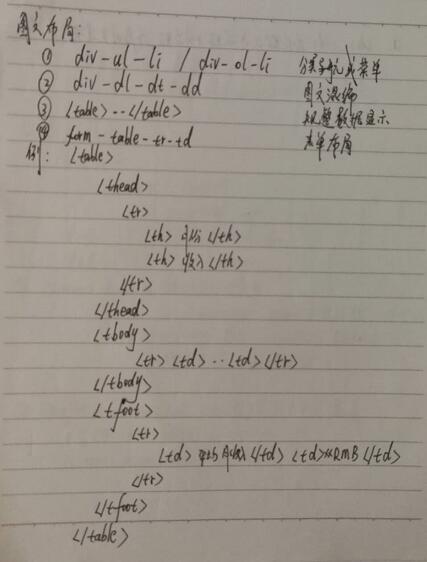 图文布局:
① div-ul-li / div-ol-li 分类导航或菜单
② div-dl-dt-dd 图文混编
③ <table>...</table> 规整数据显示
④ form-table-tr-td 表单布局
例: <table>
<thead>
<tr>
<th> </th>
<th> 收入 </th>
</tr>
</thead>
<tbody>
<tr> <td> ...<td> </tr>
</tbody>
<tfoot>
<tr>
<td> 平均月收入 </td> <td>xxRMB </td>
</tr>
</tfoot>
</table>